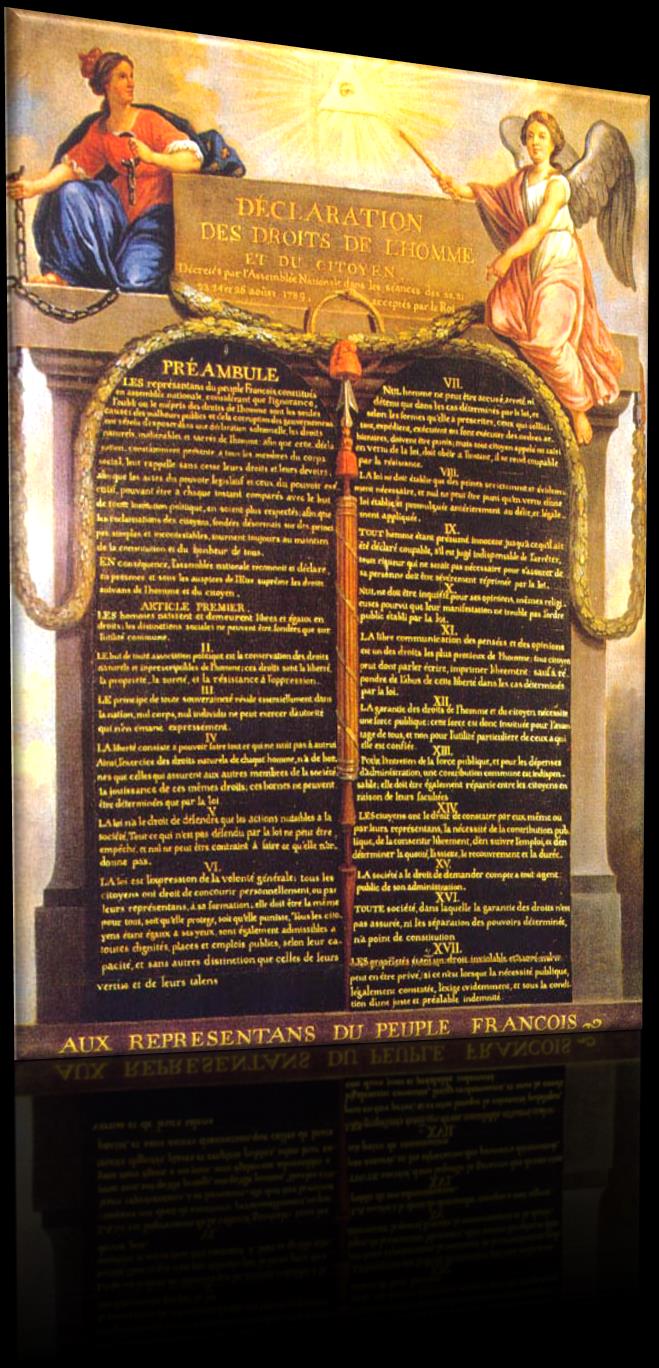 DÉCLARATION
DES DROITS DE L'HOMME
ET DU CITOYEN,
Décrétés par l'Assemblée Nationale dans les séances des 20, 21
23, 24 et 26 août 1789, acceptés par le Roi
PRÉAMBULE
LES représentans du peuple François, constitués
en assemblée nationale, considérant que l'ignorance,
l'oubli ou le mépris des droits de l'homme sont les seules
causes des malheurs publics et de la corruption des gouvernemens
ont résolu d'exposer dans une déclaration solemnelle, les droits
naturels, inaliénables et sacrés de l'homme; afin que cette décla
ration, constamment présente à tous les membres du corps
social, leur rappelle sans cesse leurs droits et leurs devoirs
afin que les actes du pouvoir législatif et ceux du pouvoir exé
cutif, pouvant être à chaque instant comparés avec le but
de toute institution politique, en soient plus respectés; afin que
les réclamations des citoyens, fondées désormais sur des principes
simples et incontestables, tournent toujours au maintien
de la constitution et du bonheur de tous.
EN conséquence, l'assemblée nationale reconnoit et déclare
en présence et sous les auspices de l'Etre suprême les droits
suivans de l'homme et du citoyen.
ARTICLE PREMIER.
LES hommes naissent et demeurent libres et égaux en
droits; les distinctions sociales ne peuvent être fondées que sur
l'utilité commune.
II.
LE but de toute association politique est la conservation des droits
naturels et imprescriptibles de l'homme; ces droits sont la liberté,
la propriété, la sureté, et la résistance à l'oppression.
III.
LE principe de toute souveraineté réside essentiellement dans
la nation, nul corps, nul individu ne peut exercer d'autorité
qui n'en émane expressement.
IV.
LA liberté consiste à pouvoir faire tout ce qui ne nuit pas à autrui
Ainsi, l'exercice des droits naturels de chaque homme, n'a de bor
nes que celles qui assurent aux autres membres de la société
la jouissance de ces mêmes droits; ces bornes ne peuvent
être déterminées que par la loi
V.
LA loi n'a le droit de défendre que les actions nuisibles à la
société. Tout ce qui n'est pas défendu par la loi ne peut être
empêché, et nul ne peut être contraint à faire ce qu'elle n'or
donne pas.
VI.
LA loi est l'expression de la volonté générale; tous les
citoyens ont droit de concourir personnellement, ou par
leurs représentans, à sa formation; elle doit être la même
pour tous, soit qu'elle protege, soit qu'elle punisse. Tous les cito
yens étant égaux à ses yeux, sont également admissibles à
toutes dignités, places et emplois publics, selon leur ca
pacité, et sans autres distinction que celles de leurs
vertus et de leurs talens
VII.
NUL homme ne peut être accusé, arrêté, ni
détenu que dans les cas déterminés par la loi, et
selon les formes qu'elle a prescrites, ceux qui sollici
tent, expédient, exécutent ou font exécuter des ordres ar
bitraires, doivent être punis; mais tout citoyen appelé ou saisi
en vertu de la loi, doit obéir à l'instant, il se rend coupable
par la résistance.
VIII.
LA loi ne doit établir que des peines strictement et évidem
ment nécessaires, et nul ne peut être puni qu'en vertu d'une
loi établie et promulguée antérieurement au délit, et légale
ment appliquée.
IX.
TOUT homme étant présumé innocent jusqu'à ce qu'il ait
été déclaré coupable, s'il est jugé indispensable de l'arrêter,
toute rigueur qui ne serait pas nécessaire pour s'assurer de
sa personne doit être sévèrement réprimée par la loi.
X.
NUL ne doit être inquiété pour ses opinions, mêmes religi
euses pourvu que leur manifestation ne trouble pas l'ordre
public établi par la loi.
XI.
LA libre communication des pensées et des opinions
est un des droits les plus précieux de l'homme; tout citoyen
peut donc parler écrire, imprimer librement; sauf à ré
pondre de l'abus de cette liberté dans les cas déterminés
par la loi.
XII.
LA garantie des droits de l'homme et du citoyen nécessite
une force publique; cette force est donc instituée pour l'avan
tage de tous, et non pour l'utilité particuliere de ceux à qui
elle est confiée.
XIII.
POUR l'entretien de la force publique, et pour les dépenses
d'administration, une contribution commune est indispen
sable; elle doit être également répartie entre les citoyens en
raison de leurs facultées.
XIV.
LES citoyens ont le droit de constater par eux même ou
par leurs représentans, la nécessité de la contribution pub
lique, de la consentir librement, d'en suivre l'emploi, et d'en
déterminer la quotité, l'assiette, le recouvrement et la durée.
XV.
LA société a le droit de demander compte à tout agent
public de son administration.
XVI.
TOUTE société, dans laquelle la garantie des droits n'est
pas assurée, ni les séparation des pouvoirs déterminée,
n'a point de constitution
XVII.
LES propriétés étant un droit inviolable et sacré, nul ne
peut en être privé, si ce n'est lorsque la nécessité publique,
légalement constatée, l'exige evidemment, et sous la condi
tion d'une juste et préalable indemnité.
AUX REPRESENTANS DU PEUPLE FRANCOIS